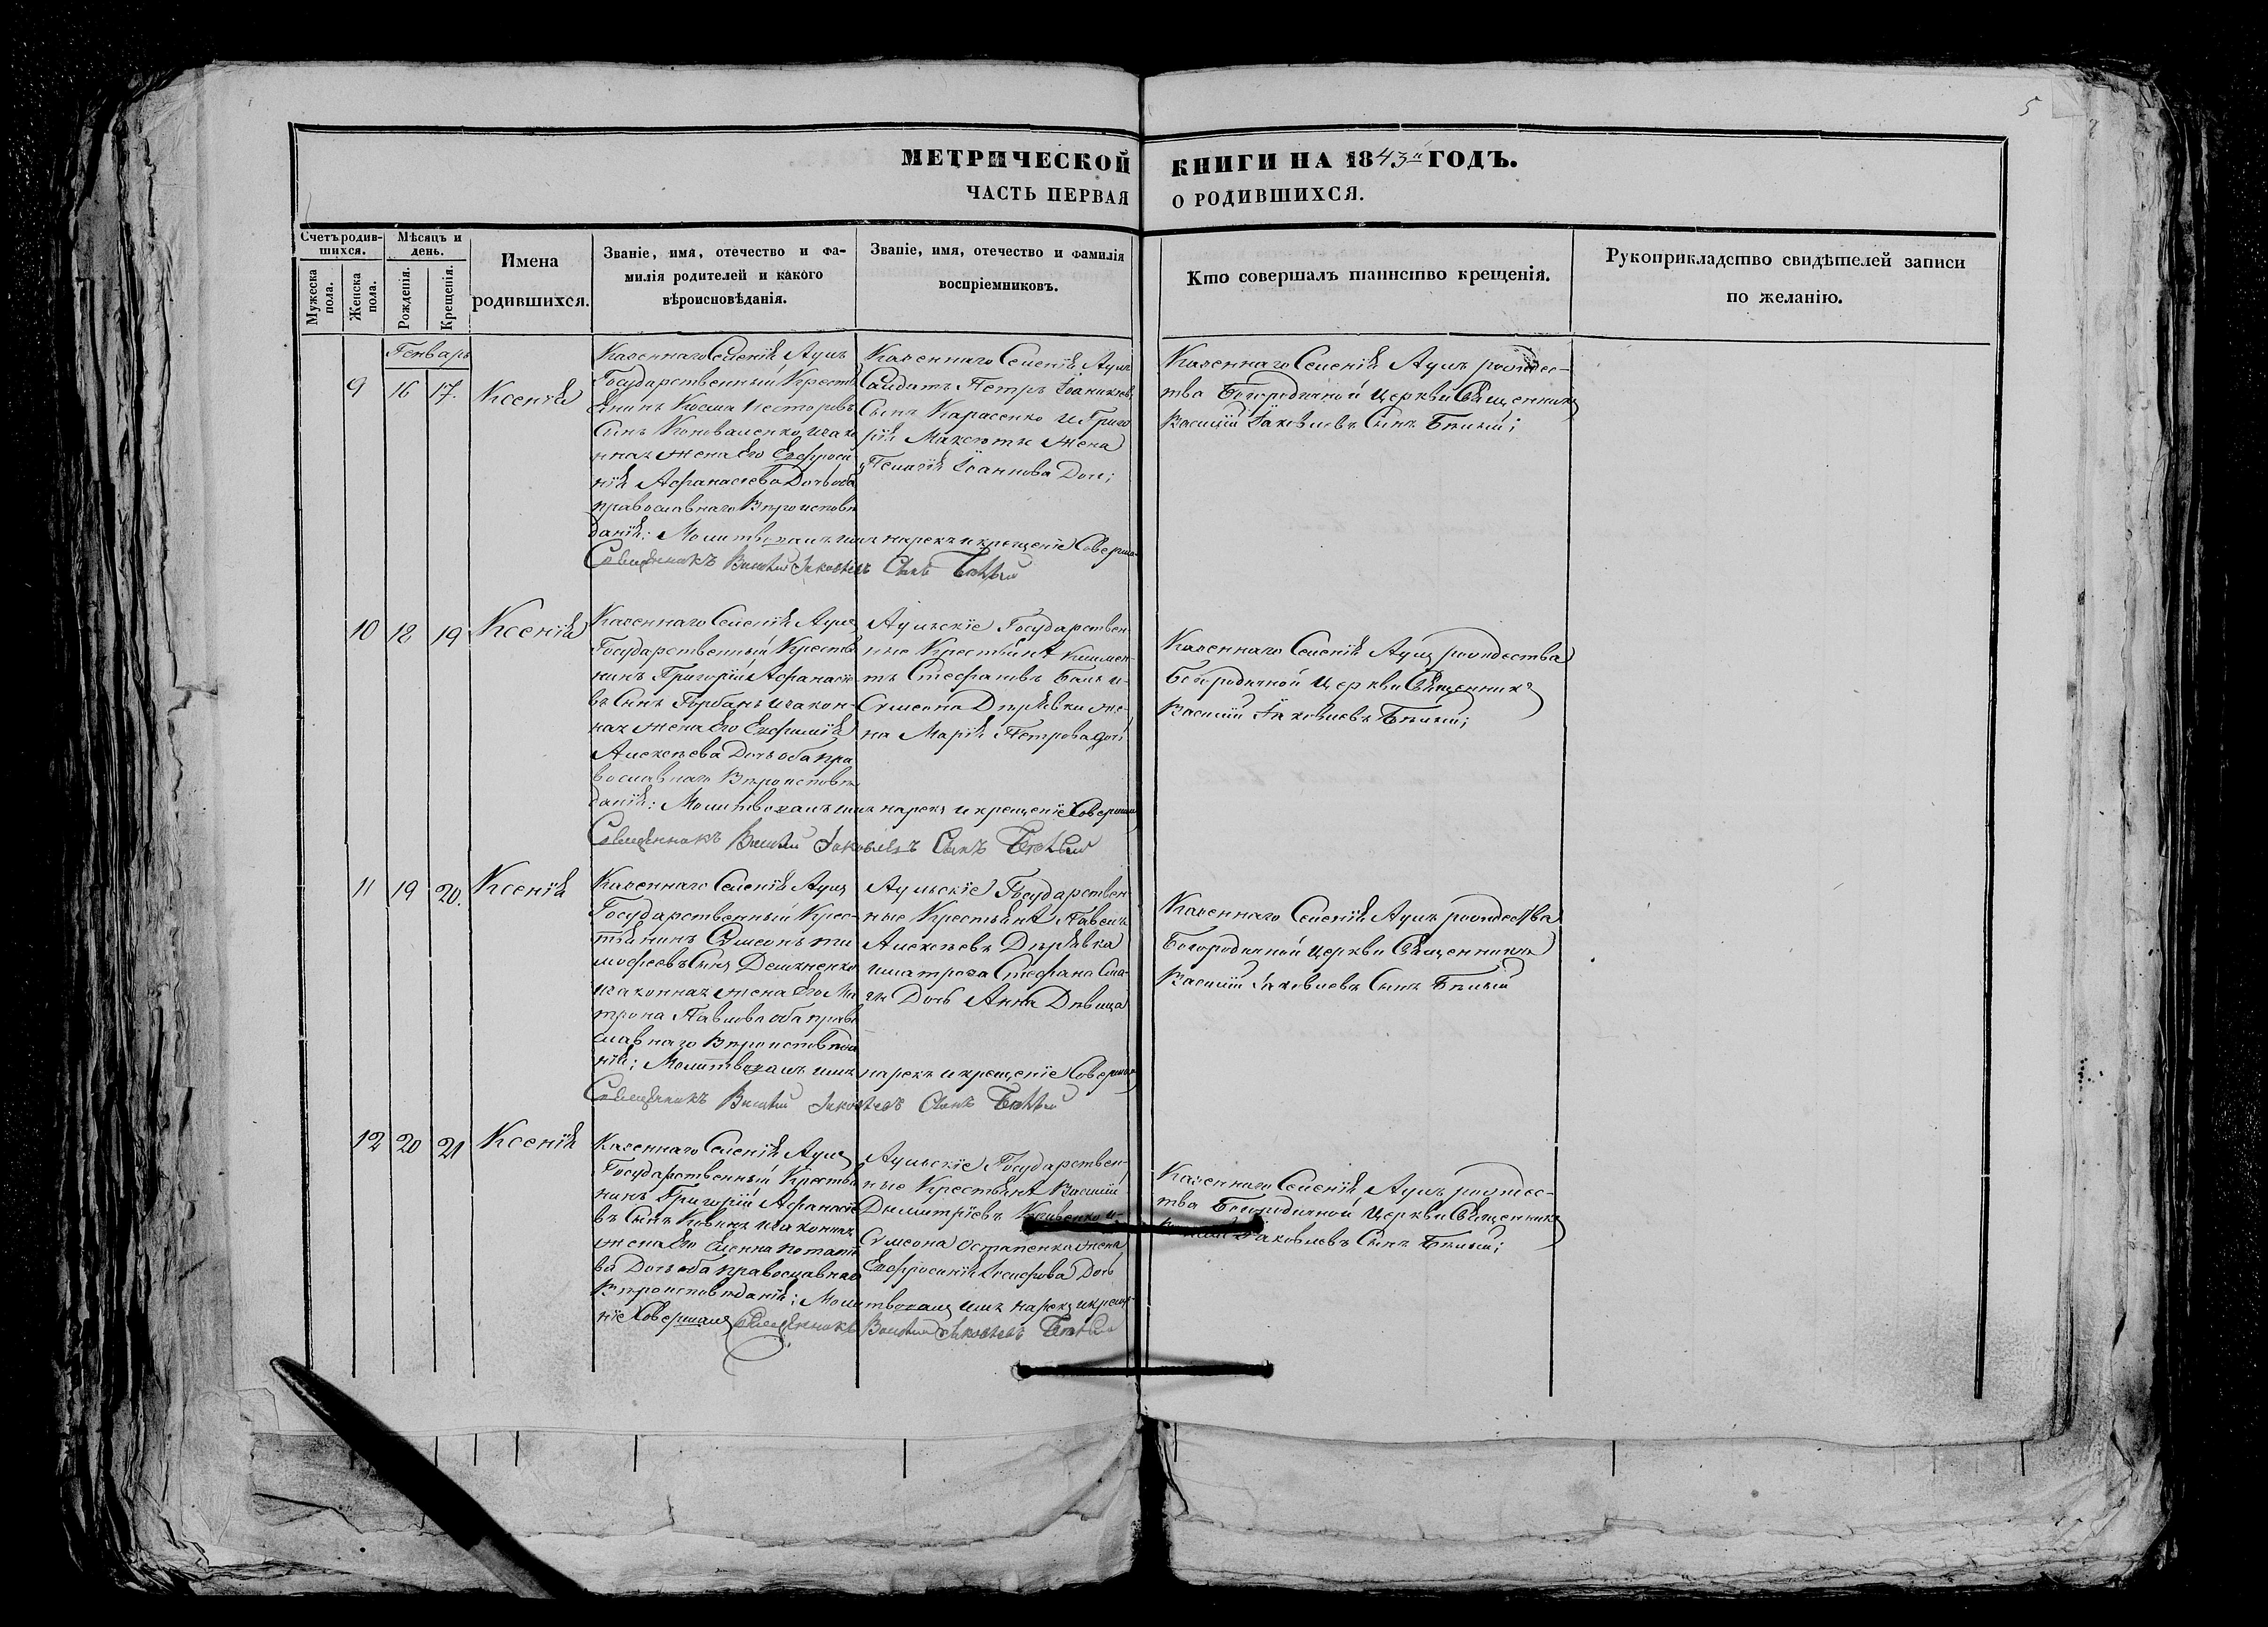 5
МЕТРИЧЕСКОЙ КНИГИ НА 1843й ГОДЪ.
ЧАСТЬ ПЕРВАЯ О РОДИВШИХСЯ.
Счетъ родив-
шихся.
Мужеска
пола.
Женска
пола.
Мѣсяцъ и
день.
Рожденія.
Крещенія.
Имена
родившихся.
Званіе, имя, отечество и фа-
милія родителей и какого
вѣроисповѣданія.
Званіе, имя, отечество и фамилія
воспріемниковъ.
Кто совершалъ таинство крещенія.
Рукоприкладство свидѣтелей записи
по желанію.
Генварь
9 16 17. Ксенія
Казеннаго Селенія Аулъ
Государственный Кресть
янинъ Косма Несторовъ
Сынъ Коноваленко изако
нная жена Его Евфроси
нія Афанасіева Дочь оба
православнаго Вѣроисповѣ
данія: Молитвовалъ имя нарекъ и крещеніе Соверша
Священникъ Василій Іаковлевъ Сынъ Бѣлый
Казеннаго Селенія Аулъ
Солдатъ Петръ Іоаникіевъ
Сынъ Карасенко и Григо
рія Махсюты жена
Пелагія Іоаннова Доч;
Казеннаго Селенія Аулъ рождес-
тва Богородичной Церкви Священникъ
Василій Іаковлевъ Сынъ Бѣлый;
10 18 19 Ксенія
Казеннаго Селенія Аулъ
Государственный Крестья
нинъ Григорій Афанасіе
въ Сынъ Горбань изакон-
ная жена Его Евфимія
Алексѣева Дочь оба пра
вославнаго Вѣроисповѣ
данія: Молитвовалъ имя нарекъ и крещеніе Совершилъ
Священникъ Василій Іаковлевъ Сынъ Бѣлый
Аульскіе Государствен-
ные Крестьяне Климен-
тъ Стефановъ Балъ и-
Симеона Дѣрявки же-
на Марія Петрова доч
Казеннаго Селенія Аулъ рождества
Богородичной Церкви Священникъ
Василій Іаковлевъ Бѣлый;
11 19 20. Ксенія
Казеннаго Селенія Аулъ
Государственный Крес-
тьянинъ Симеонъ ти
мофеевъ Сынъ Демяненко
изаконная жена Его Ма
трона Павлова оба право
славнаго Вѣроисповѣда
нія; Молитвовалъ имя нарекъ и крещеніе Совершилъ
Священникъ Василій Іаковлевъ Сынъ Бѣлый
Аульскіе Государствен-
ные Крестьяне Павелъ
Алексѣевъ Дѣрявка
Стефана
Дочь Анна Дѣвица
Казеннаго Селенія Аулъ рождества
Богородичной Церкви Священникъ
Василій Іаковлевъ Сынъ Бѣлый
12 20 21 Ксенія
Казеннаго Селенія Аулъ
Государственный Крестья
нинъ Григорій Афанасіе
въ Сынъ изаконная
жена Его Елена
ва Дочь оба православнаго
Вѣроисповѣданія; Молитвовалъ имя нарекъ и креще-
ніе Совершилъ Священникъ Василій Іаковлевъ Бѣлый
Аульскіе Государствен-
ные Крестьяне Василій
Димитріевъ Кривенко и-
Симеона Остапенка жена
Евфросинія Іосифова Дочь
Казеннаго Селенія Аулъ рождес-
тва Богородичной Церкви Священникъ
Василій Іаковлевъ Сынъ Бѣлый;